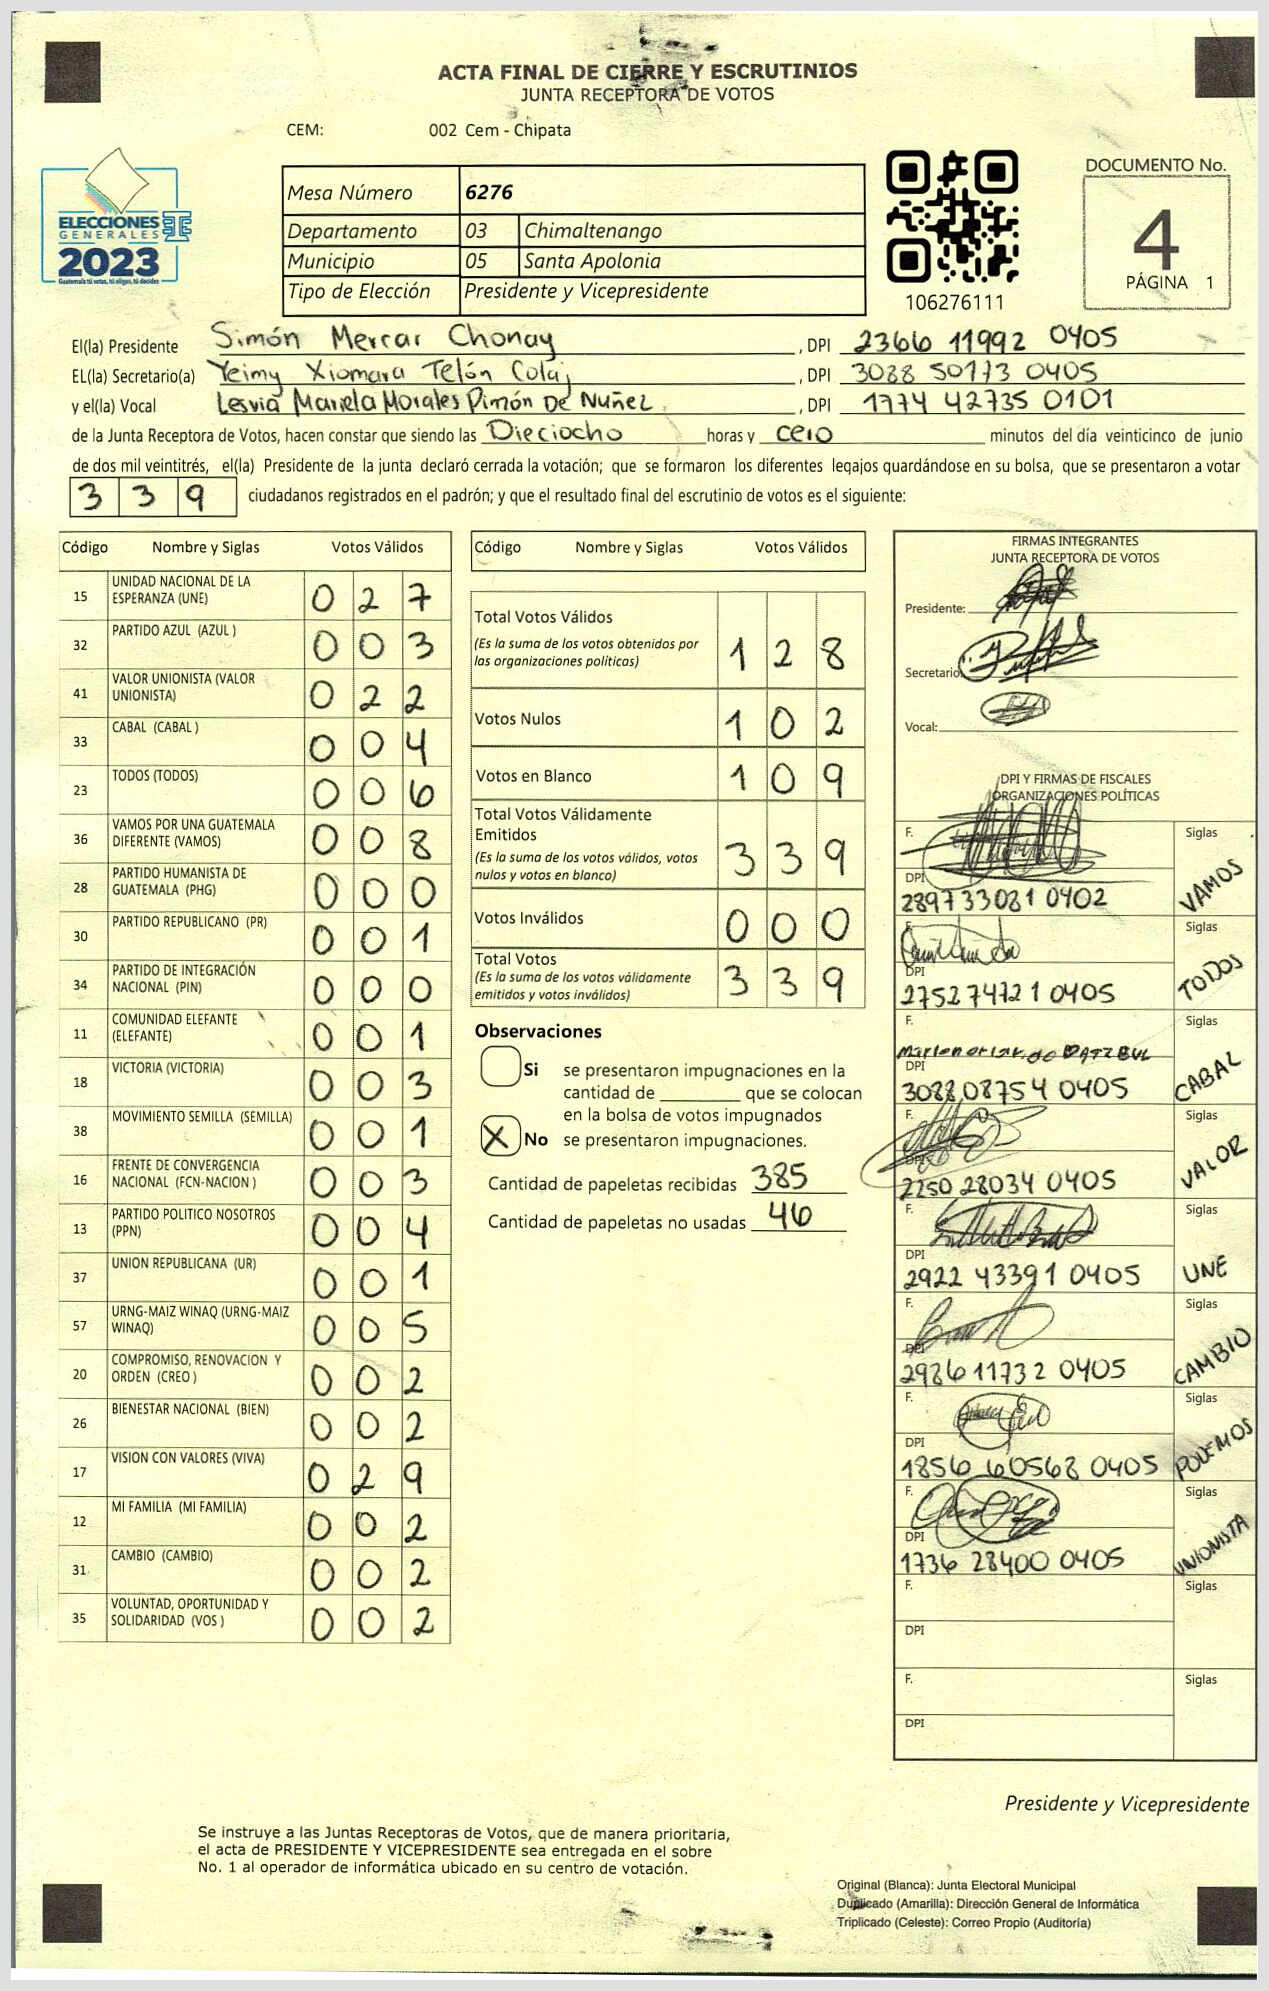 ACTA FINAL DE CIERRE Y ESCRUTINIOS
JUNTA RECEPTORA DE VOTOS
CEM: 002 Cem - Chipata
ELECCIONES
GENERALES
2023
Guatemala tú votas, tú eliges, tú decides
TSE
Mesa Número 6276
Departamento 03 Chimaltenango
Municipio 05 Santa Apolonia
Tipo de Elección Presidente y Vicepresidente
106276111
DOCUMENTO No.
4
PÁGINA 1
El(la) Presidente Simón Mercar Chonay, DPI 2366 11992 0405
EL(la) Secretario(a) Yeimy Xiomara Telón Colaj, DPI 3088 50173 0405
y el(la) Vocal Lesvia Mariela Morales Pimón De Nuñez, DPI 1774 42735 0101
de la Junta Receptora de Votos, hacen constar que siendo las Dieciocho horas y cero minutos del día veinticinco de junio
de dos mil veintitrés, el(la) Presidente de la junta declaró cerrada la votación; que se formaron los diferentes legajos guardándose en su bolsa, que se presentaron a votar
339 ciudadanos registrados en el padrón; y que el resultado final del escrutinio de votos es el siguiente:
Código Nombre y Siglas Votos Válidos
15 UNIDAD NACIONAL DE LA ESPERANZA (UNE) 0 2 7
32 PARTIDO AZUL (AZUL ) 0 0 3
41 VALOR UNIONISTA (VALOR UNIONISTA) 0 2 2
33 CABAL (CABAL ) 0 0 4
23 TODOS (TODOS) 0 0 6
36 VAMOS POR UNA GUATEMALA DIFERENTE (VAMOS) 0 0 8
28 PARTIDO HUMANISTA DE GUATEMALA (PHG) 0 0 0
30 PARTIDO REPUBLICANO (PR) 0 0 1
34 PARTIDO DE INTEGRACIÓN NACIONAL (PIN) 0 0 0
11 COMUNIDAD ELEFANTE (ELEFANTE) 0 0 1
18 VICTORIA (VICTORIA) 0 0 3
38 MOVIMIENTO SEMILLA (SEMILLA) 0 0 1
16 FRENTE DE CONVERGENCIA NACIONAL (FCN-NACION ) 0 0 3
13 PARTIDO POLITICO NOSOTROS (PPN) 0 0 4
37 UNION REPUBLICANA (UR) 0 0 1
57 URNG-MAIZ WINAQ (URNG-MAIZ WINAQ) 0 0 5
20 COMPROMISO, RENOVACION Y ORDEN (CREO ) 0 0 2
26 BIENESTAR NACIONAL (BIEN) 0 0 2
17 VISION CON VALORES (VIVA) 0 2 9
12 MI FAMILIA (MI FAMILIA) 0 0 2
31 CAMBIO (CAMBIO) 0 0 2
35 VOLUNTAD, OPORTUNIDAD Y SOLIDARIDAD (VOS ) 0 0 2
Código Nombre y Siglas Votos Válidos
Total Votos Válidos
(Es la suma de los votos obtenidos por las organizaciones políticas) 1 2 8
Votos Nulos 1 0 2
Votos en Blanco 1 0 9
Total Votos Válidamente Emitidos
(Es la suma de los votos válidos, votos nulos y votos en blanco) 3 3 9
Votos Inválidos 0 0 0
Total Votos
(Es la suma de los votos válidamente emitidos y votos inválidos) 3 3 9
Observaciones
Si se presentaron impugnaciones en la
cantidad de ________ que se colocan
en la bolsa de votos impugnados
X No se presentaron impugnaciones.
Cantidad de papeletas recibidas 385
Cantidad de papeletas no usadas 46
FIRMAS INTEGRANTES
JUNTA RECEPTORA DE VOTOS
Presidente:
Secretario
Vocal:
DPI Y FIRMAS DE FISCALES
ORGANIZACIONES POLÍTICAS
F. Siglas
DPI
2897 33081 0402 VAMOS
F. Siglas
DPI
2752 74721 0405 TODOS
F. Siglas
DPI
3088 08754 0405 CABAL
F. Siglas
DPI
2250 28034 0405 VALOR
F. Siglas
DPI
2922 43391 0405 UNE
F. Siglas
DPI
2986 11732 0405 CAMBIO
F. Siglas
DPI
1856 60568 0405 PODEMOS
F. Siglas
DPI
1736 28400 0405 UNIONISTA
F. Siglas
DPI
F. Siglas
DPI
Presidente y Vicepresidente
Se instruye a las Juntas Receptoras de Votos, que de manera prioritaria,
el acta de PRESIDENTE Y VICEPRESIDENTE sea entregada en el sobre
No. 1 al operador de informática ubicado en su centro de votación.
Original (Blanca): Junta Electoral Municipal
Duplicado (Amarilla): Dirección General de Informática
Triplicado (Celeste): Correo Propio (Auditoría)